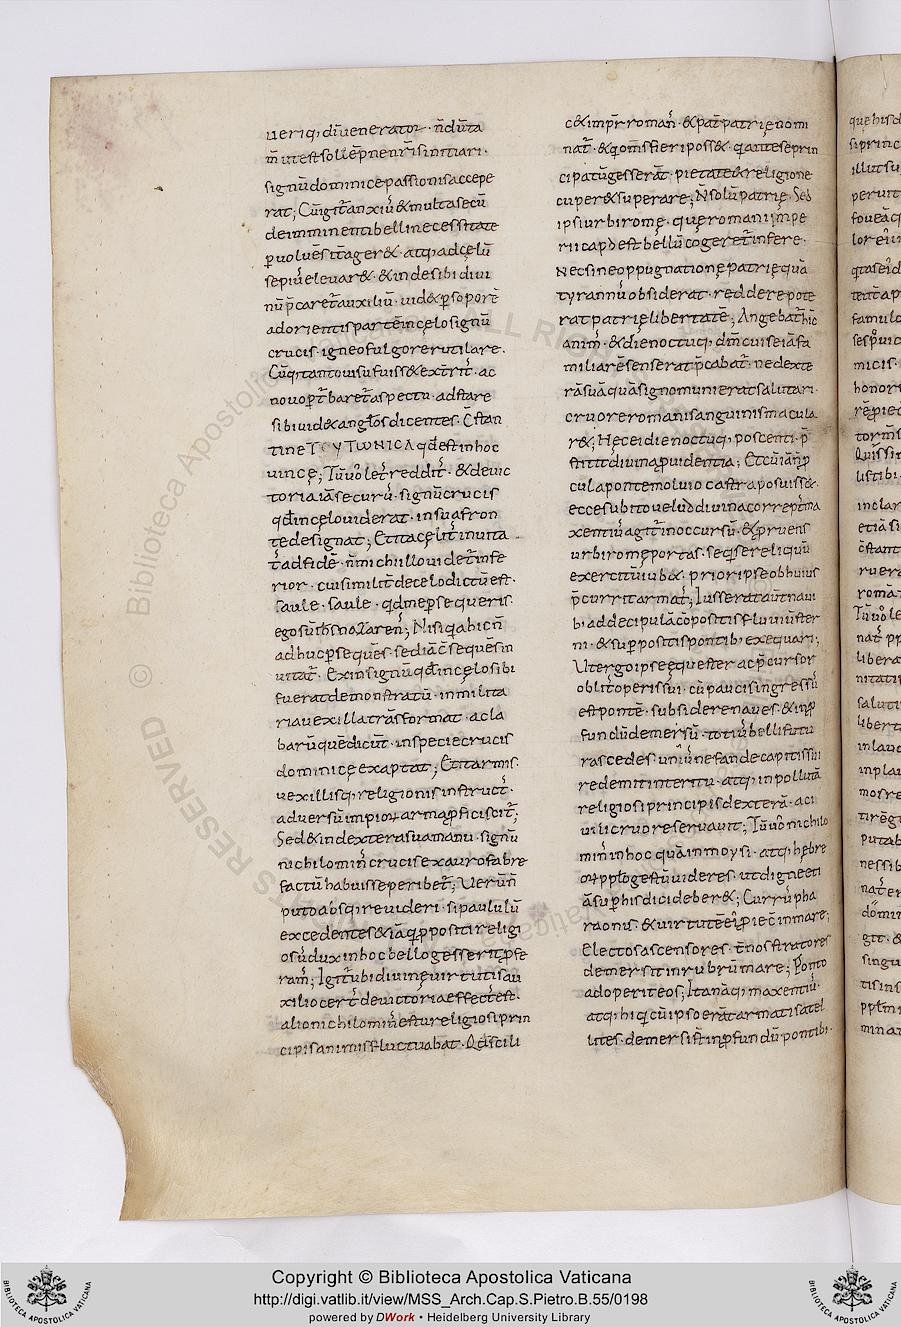 ueriq; dñ uenerator · ñdũ ta
m̃ ut est sollẽpne nr̃is initiari ·
signũ dominicę passionis accepe
rat; Cũ igit̃ anxiu᷒ & multa secũ
de imminenti belli necessitate
puoluẽs ıt̃ ager& · atq; ad cęlũ
sepiu᷒ eleuar& · & inde sibi diui
nũ p̃caret̃ auxiliũ · uid& p soporẽ
ad orientis partẽ in cęlo signũ
crucis · igneo fulgore rutilare ·
Cũq; tanto uisu fuiss& ext̃rit᷒ · ac
nouo p̱t̃baret̃ aspectu · adstare
sibi uid& anglos dicentes · C̃stan
tine ΤΟΥΤΩ ΝΙCΑ qd est in hoc
uince; Tũ uo let᷒ reddit᷒ · & de uic
toria iã securu᷒ · signũ crucis
qd in cęlo uiderat · in sua fron
te designat; Et ita cęlit᷒ inuita
t᷒ ad fidẽ · ñ m̃ ichi illo uidet̃ infe
rior · cui similit̃ de celo dictũ est ·
saule · saule · qd me perse queris ·
ego sũ ih̃s nazaren᷒; Nisi qa hic ñ
adhuc p̱sequẽs · sed iã c̃sequẽs in
uitat᷒ · Ex in signũ qd in cęlo sibi
fuerat demonstratũ · in milita
ria uexilla trãsformat · ac la
barũ quẽ dicũt · in specie crucis
dominicę exaptat; Et ita armis
uexillisq; religionis instruct᷒ ·
aduersũ impioꝝ arma p̱ficiscit̃;
Sed & in dextera sua manu · signũ
nichilomin᷒ crucis ex auro fabre
factũ habuisse peribet̃; Verũ ñ
puto absq; re uideri · si paululũ
excedentes & iã q p̱positi religi
osũ dux in hoc bello gesserit p̱fe
ram᷒; Igit̃ ubi diuinę uirtutis au
xilio cert᷒ de uictoria effect᷒ est ·
alio nichilomin᷒ ęstu religiosi prin
cipis animis fluctuabat · Qd scili
c& imp̃r roman᷒ · & pat̃ patrię nomi
nat᷒ · & q om̃s fieri poss& · q ante se prin
cipatũ gesserãt · pietate & religione
cuper& superare; Ñ solũ patrię · Sed
ipsi urbi romę · quę romani impe
rii cap᷒ est bellũ coger et̃ inferre ·
Nec sine oppugnatione patrię quã
tyrannu᷒ obsiderat · reddere pote
rat patrię libertatẽ; Angebat̃ hic
anim᷒ · & die noctuq; dm̃ cui se iã fa
miliarẽ senserat p̃cabat᷒ · ne dexte
rã suã quã signo munierat salutari ·
cruore romani sanguinis macula
r&; Hęc ei die noctuq; poscenti · p̃
stitit diuina p̱uidentia; Et cũ iã n̄ p̱
cul a ponte moluio castra posuiss& ·
ecce subito uelud diuina corrept᷒ ma
xentiu᷒ agit̃ in occursũ · & p̱ruens
urbi romę portas · se qsere liquũ
exercitũ iub& · prior ipse obuius
p̃currit armat᷒; Iusserat aut̃ naui
b; ad decipulã c̃positis fluuiũ ster
ni · & sup̱positis pontib; exequari;
Vtergo ipse equester ac p̃cursor
oblit᷒ operis sui · cũ paucis ingressu᷒
est pontẽ · subsidere naues · & in p̱
fundũ demersu᷒ · toti᷒ belli futu
ras cedes · uni᷒ nefande capitis sui
redemit interitu · atq; in pollutã
religiosi principis dexterã · a ci
uili cruore seruauit; Tũ uo nichilo
min᷒ in hoc quã in moysi · atq; hębre
oꝝ pplo gestũ uideres · ut digne eti
ã sup̱ his dici deber&; Curru᷒ pha
raonis · & uirtutẽ ei᷒ p̱iecit in mare;
Electos ascensores · t̃nos stratores
demersit in rubrũ mare; Ponto
adoperit eos; Ita naq; maxentiu᷒ ·
atq; hi q cũ ipso erãt armati satel
lites · demersi st̃ in p̱fundũ pontib; ·
Copyright © Biblioteca Apostolica Vaticana
http://digi.vatlib.it/view/MSS_Arch.Cap.S.Pietro.B.55/0198
powered by DWork • Heidelberg University Library